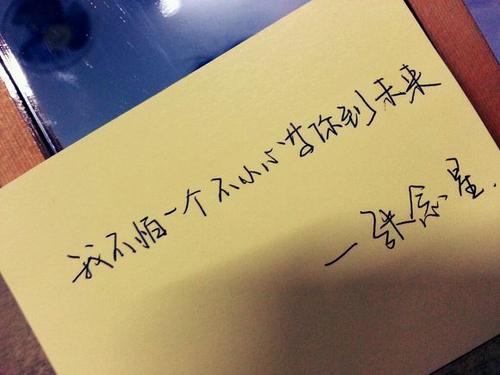 我不怕一个不小心带你到未来
—张念星.